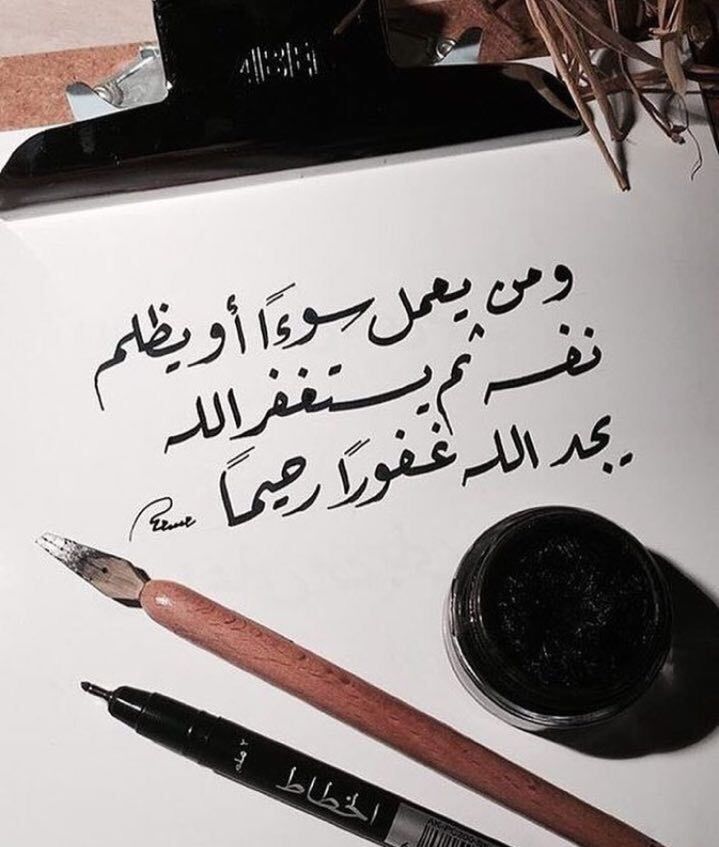 ومن يعمل سوءًا أو يظلم
نفسه ثم يستغفر الله
يجد الله غفورًا رحيمًا
٢ ملم
الخطاط